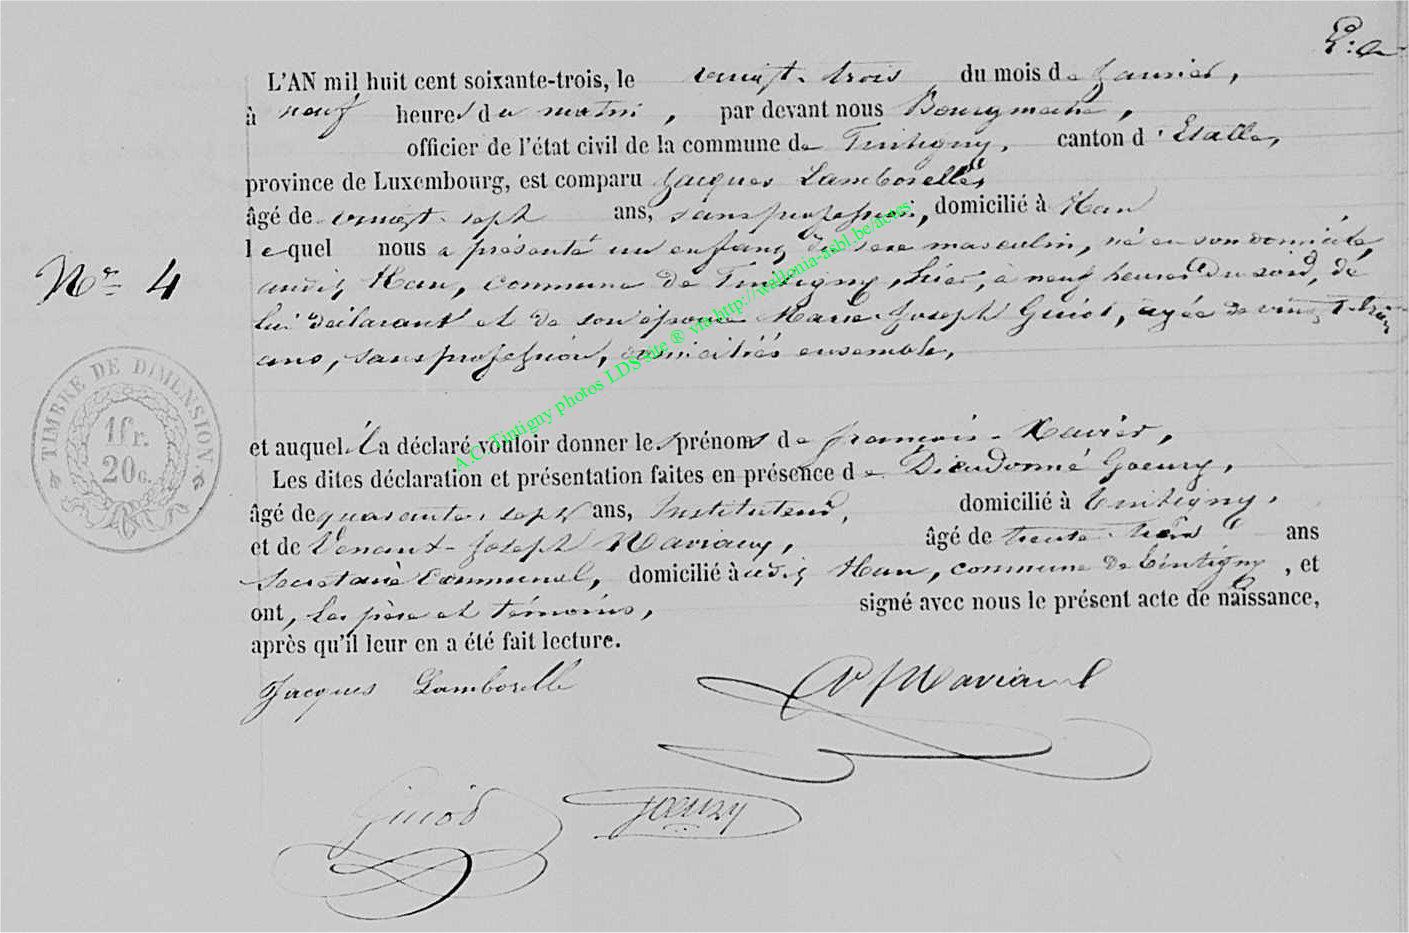 L'AN mil huit cent soixante-trois, le vingt-trois du mois de Janvier,
à neuf heures du matin, par devant nous Bourgmestre,
officier de l'état civil de la commune de Tintigny, canton d'Etalle,
province de Luxembourg, est comparu Jacques Lamborelle,
âgé de vingt-sept ans, sans profession, domicilié à Han
lequel nous a présenté un enfant du sexe masculin, né en son domicile,
audit Han, commune de Tintigny, hier, à neuf heures du soir, de
lui déclarant et de son épouse Marie-Joseph Guiot, agée de vingt-trois
ans, sans profession, domiciliés ensemble,
N° 4
TIMBRE DE DIMENSION
1fr.
20c.
et auquel il a déclaré vouloir donner les prénoms de François-Xavier,
Les dites déclaration et présentation faites en présence de Dieudonné Goeury,
âgé de quarante-sept ans, Instituteur, domicilié à Tintigny,
et de Venant-Joseph Maviaux, âgé de trente-trois ans
Secrétaire Communal, domicilié à udit Han, commune de Tintigny, et
ont, les père et témoins, signé avec nous le présent acte de naissance,
après qu'il leur en a été fait lecture.
Jacques Lamborelle
Guiot
Goeury
A.C. Tintigny photos LDS site ® via http://wallonia-asbl.be/actes